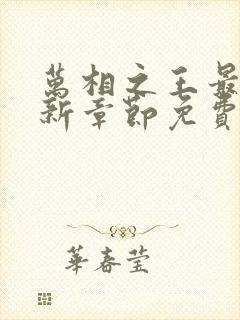 萬相之王最
新章節免費
華春莹